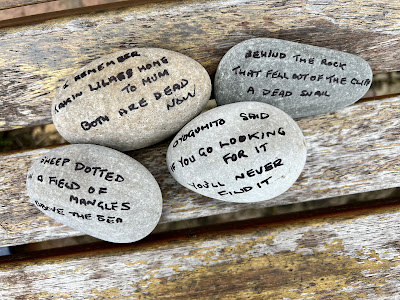 I REMEMBER
TAKIN LILACS HOME
TO MUM
BOTH ARE DEAD
NOW
BEHIND THE ROCK
THAT FELL OUT OF THE CLIFF
A DEAD SNAIL
OYOGUMITO SAID
IF YOU GO LOOKING
FOR IT
YOU'LL NEVER
FIND IT.
SHEEP DOTTED
IN A FIELD OF
MANGLES
ABOVE THE SEA